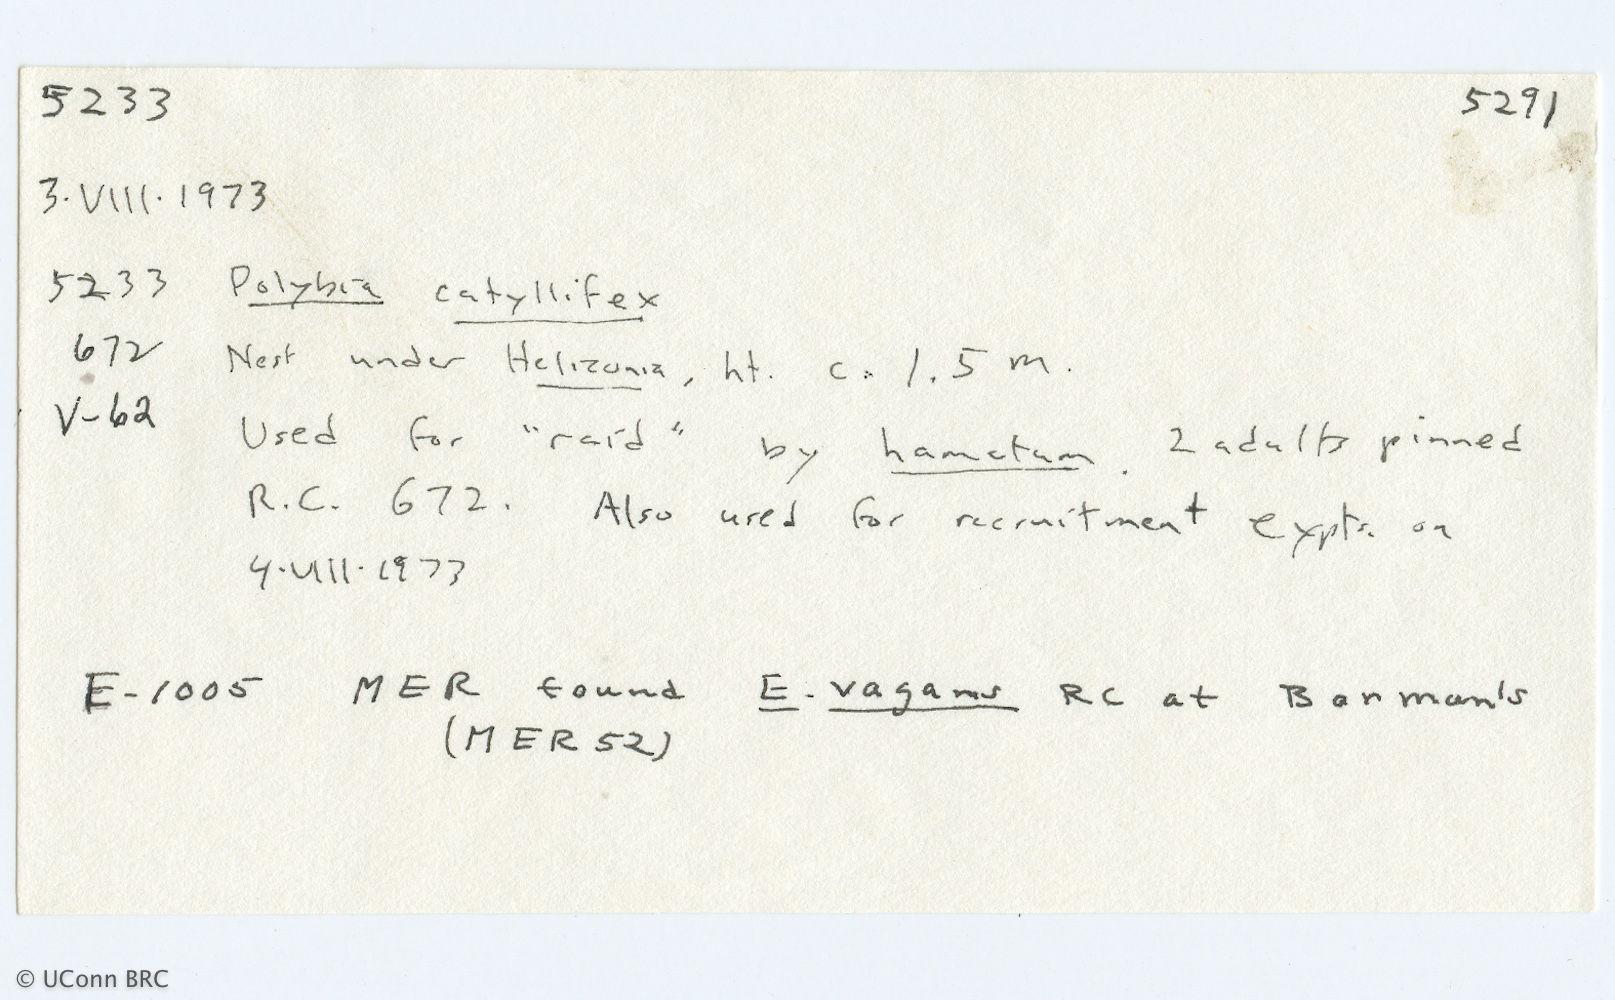 5233 5291
3·VIII·1973
5233 Polybia catyllifex
672 Nest under Heliconia, ht. c. 1.5 m.
V-62 Used for "raid" by hamatum. 2 adults pinned
R.C. 672. Also used for recruitment expts. on
4·VIII·1973
E-1005 MER found E. vagans RC at
(MER 52)
© UConn BRC